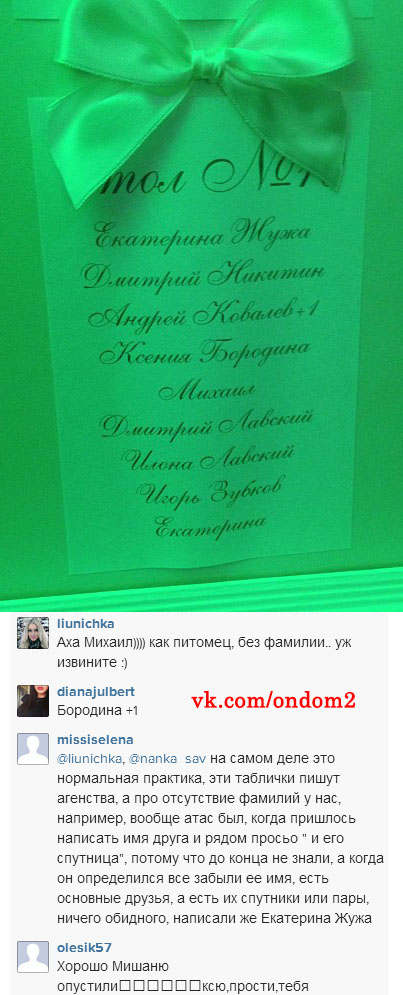 тол №1
Екатерина Жужа
Дмитрий Никитин
Андрей Ковалев+1
Ксения Бородина
Михаил
Дмитрий Лавский
Илона Лавский
Игорь Зубков
Екатерина
liunichka
Аха Михаил)))) как питомец, без фамилии.. уж
извините :)
dianajulbert
Бородина +1
vk.com/ondom2
missiselena
@liunichka, @nanka sav на самом деле это
нормальная практика, эти таблички пишут
агенства, а про отсутствие фамилий у нас,
например, вообще атас был, когда пришлось
написать имя друга и рядом просьо " и его
спутница", потому что до конца не знали, а когда
он определился все забыли ее имя, есть
основные друзья, а есть их спутники или пары,
ничего обидного, написали же Екатерина Жужа
olesik57
Хорошо Мишаню
опустили□□□□□□ксю,прости,тебя